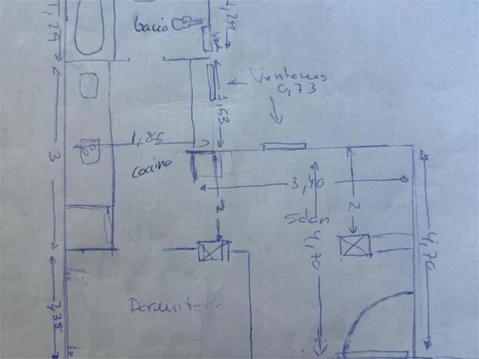 1,29
baño
1,29
Ventanas
0,73
1,63
1,85
cocina
3
3,40
2
2
Salon
4,70
4,70
Dormitorio